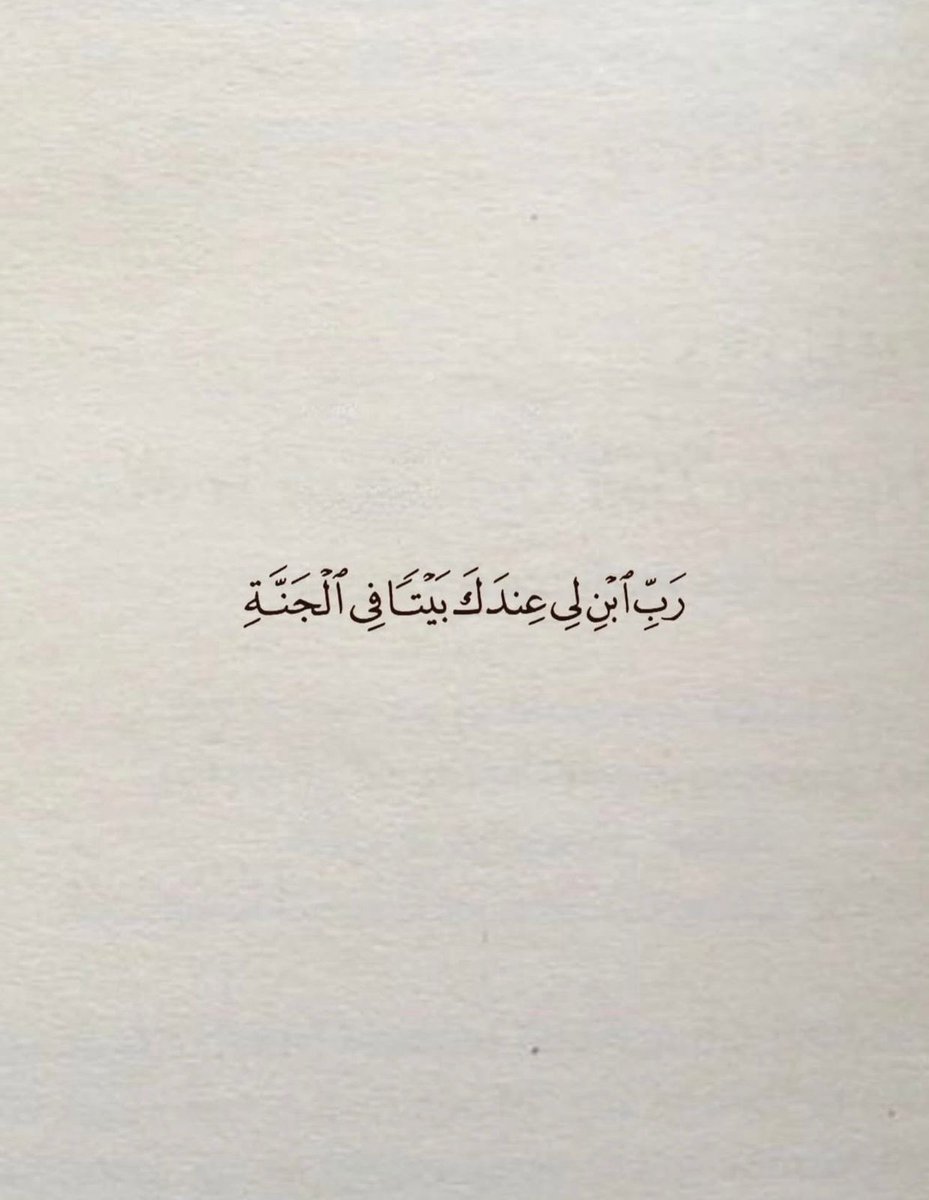 رَبِّ ٱبۡنِ لِي عِندَكَ بَيۡتٗا فِي ٱلۡجَنَّةِ